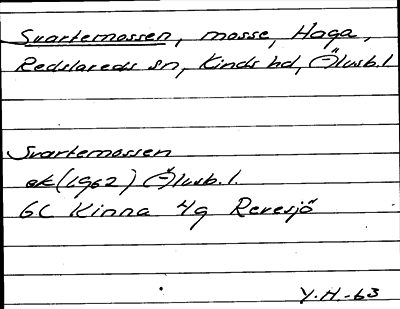 Svartemossen, mosse, Haga,
Redslareds sn, Kinds hd, Älvsb. l
Svartemossen
ek (1962) Älvsb. l.
6C Kinna 4g Revesjö
Y. H. -63